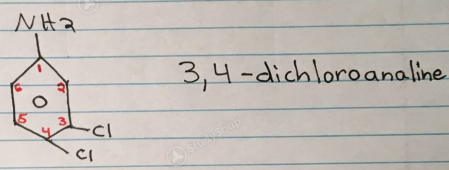 NH2
1
6 2
3,4-dichloroanaline
5 3
4
Cl
Cl
StudySoup